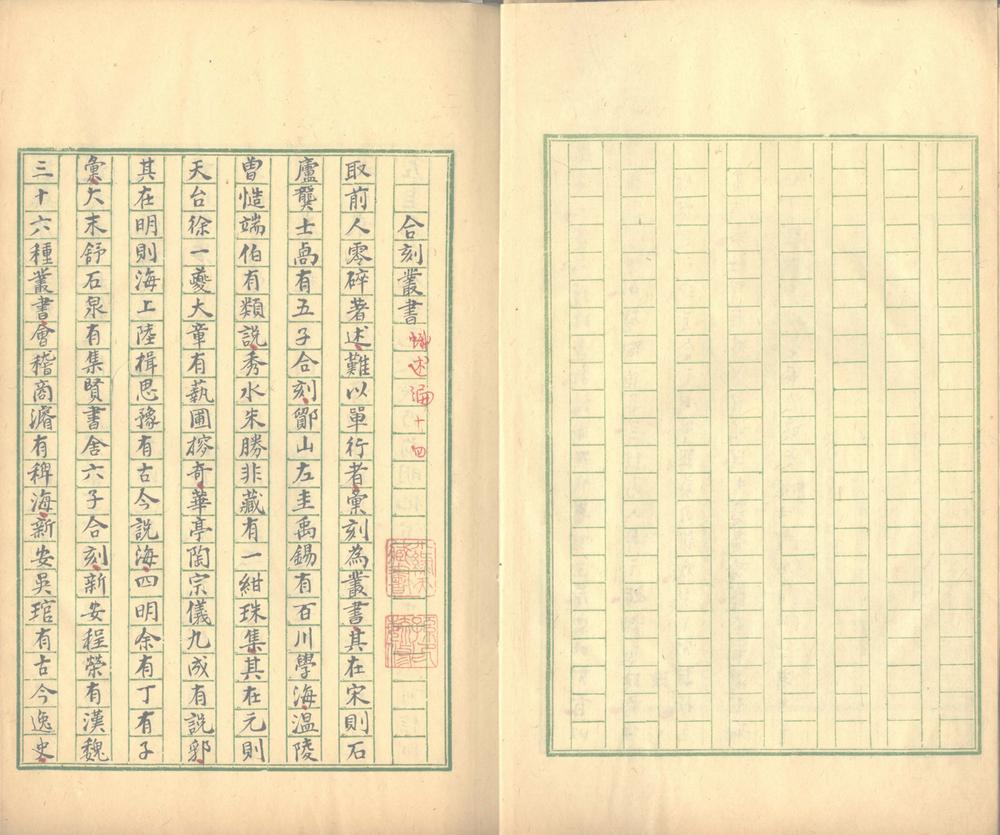 合刻叢書 蛾述編十四
取前人零碎著述難以單行者彙刻為叢書其在宋則石
廬龔士卨有五子合刻鄮山左圭禹錫有百川學海溫陵
曾慥端伯有類說秀水朱勝非藏有一紺珠集其在元則
天台徐一夔大章有蓺圃搜奇華亭陶宗儀九成有說郛
其在明則海上陸楫思豫有古今說海四明余有丁有子
彙大末舒石泉有集賢書舍六子合刻新安程榮有漢魏
三十六種叢書會稽商濬有稗海新安吳琯有古今逸史